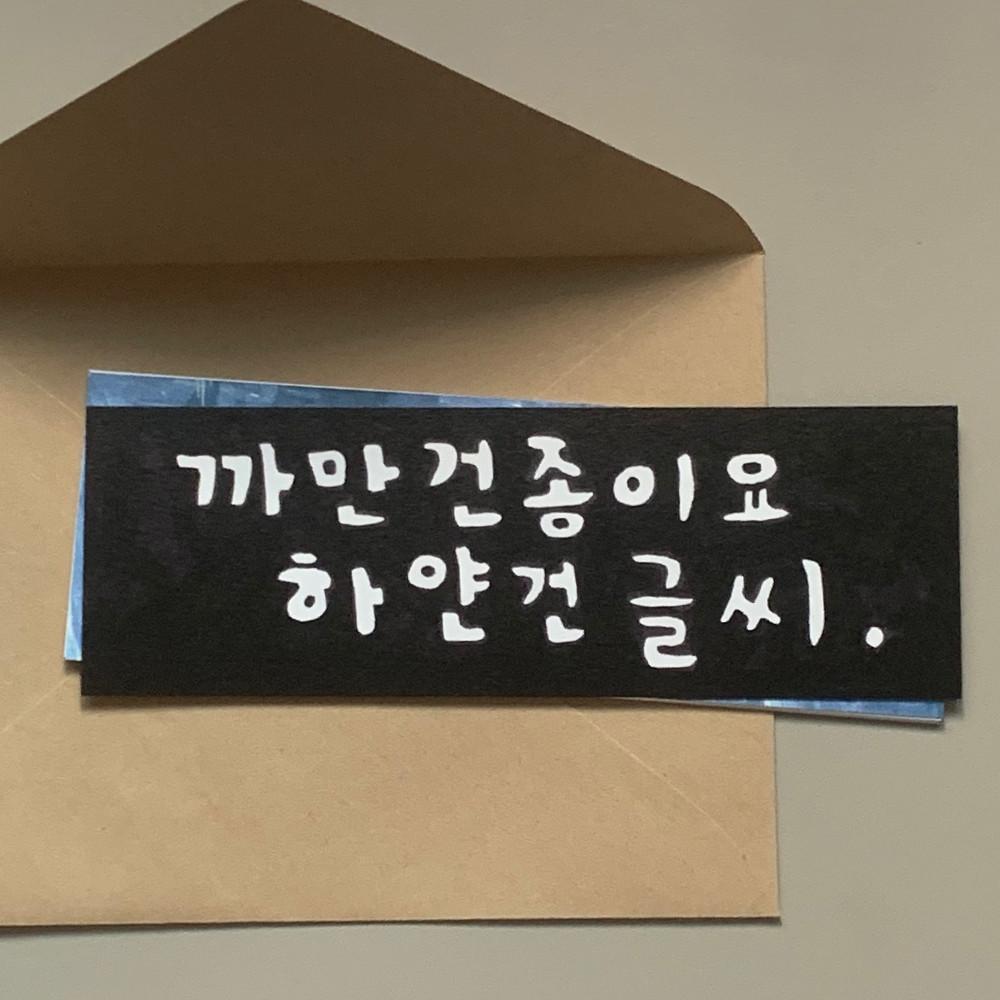 까만건종이요
하얀건글씨.